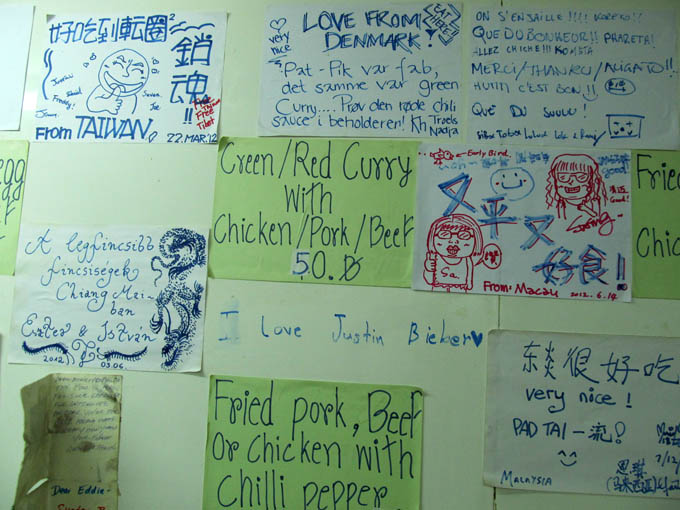 好吃到転圈
鎖魂!!
Free Tibet
From TAIWAN
22.MAR.'12
very nice
LOVE FROM
DENMARK!
EAT HERE!
Pat-Pik var fab,
det samme var green
Curry.... Prøv den røde chili
sauce i beholderen! Kh Troels
Nadja
ON S'ENJAILLE!!!!
QUE DU BONHEUR!!
ALLEZ CHICHE!!!
MERCI/THANKU/ALIGATO!!
HUM C'EST BON!!
QUE DU SUUU!
Green/Red Curry
With
Chicken/Pork/Beef
50.0
Early Bird
又平又
好食!!
good!
Sa.
From: Macau
2012.6.14
Fried
Chic
A legfincsibb
fincsiségek
Chiang Mai-
ban
Eszter & István
2012
03.06.
I Love Justin Bieber
Fried pork, Beef
Or Chicken with
Chilli pepper
很好吃
very nice!
PAD TAI 一流!
MALAYSIA
Dear Eddie-